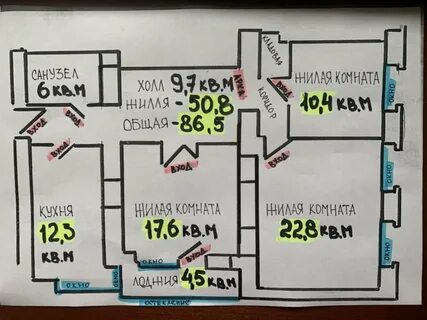 САНУЗЕЛ
6 КВ.М
ХОЛЛ 9,7 КВ.М
ЖИЛАЯ - 50,8
ОБЩАЯ - 86,5
АРКА
КЛАДОВАЯ
КОРИДОР
ВХОД
ЖИЛАЯ КОМНАТА
10,4 КВ.М
ОКНО
ВХОД
ВХОД
ВХОД
ВХОД
ВХОД
КУХНЯ
12,3
КВ.М
ЖИЛАЯ КОМНАТА
17,6 КВ.М
ЖИЛАЯ КОМНАТА
22,8 КВ.М
ОКНО
ОКНО
ВХОД
ОКНО
ОКНО
ЛОДЖИЯ 4,5 КВ.М
ОСТЕКЛЕНИЕ